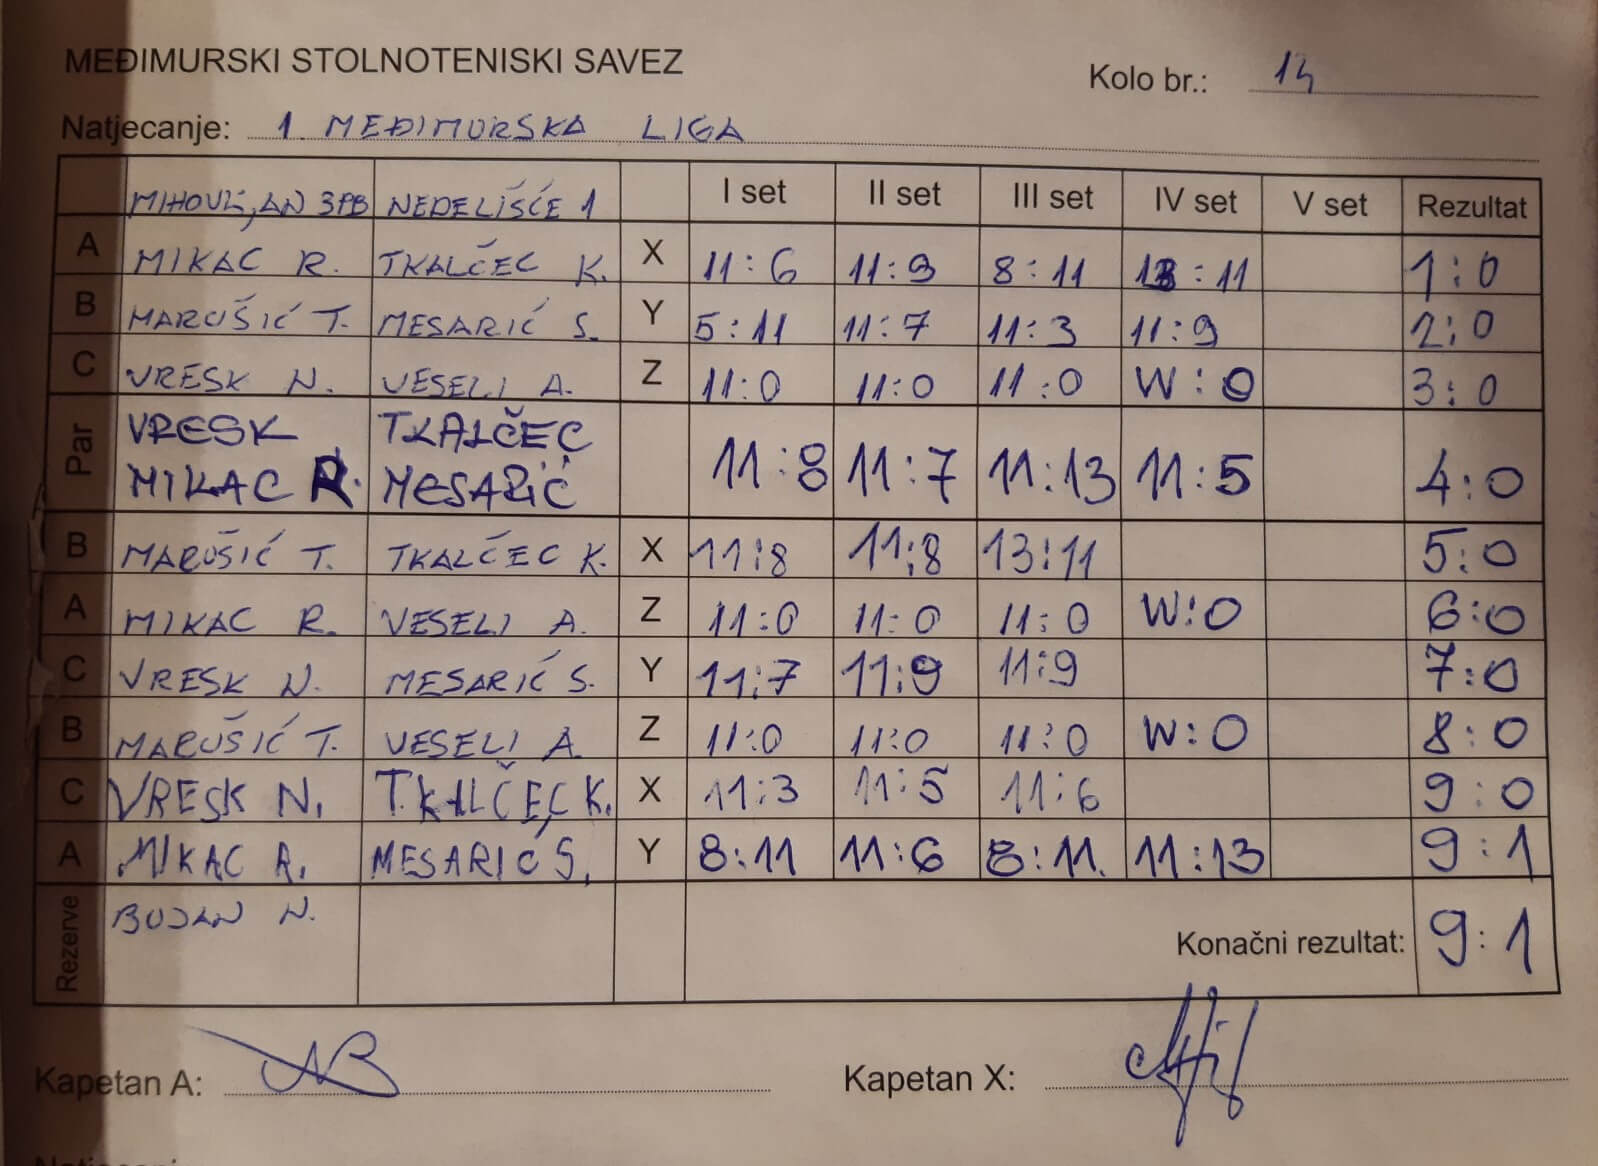 MEĐIMURSKI STOLNOTENISKI SAVEZ
Kolo br.: 14
Natjecanje: 1 MEĐIMURSKA LIGA
MIHOVLJAN 3PB NEDELIŠĆE 1 I set II set III set IV set V set Rezultat
A MIKAC R. TKALČEC K. X 11:6 11:9 8:11 13:11 1:0
B MARUŠIĆ T. MESARIĆ S. Y 5:11 11:7 11:3 11:9 2:0
C VRESK N. VESELI A. Z 11:0 11:0 11:0 W:0 3:0
Par VRESK TKALČEC
MIKAC R. MESARIĆ 11:8 11:7 11:13 11:5 4:0
B MARUŠIĆ T. TKALČEC K. X 11:8 11:8 13:11 5:0
A MIKAC R. VESELI A. Z 11:0 11:0 11:0 W:0 6:0
C VRESK N. MESARIĆ S. Y 11:7 11:9 11:9 7:0
B MARUŠIĆ T. VESELI A. Z 11:0 11:0 11:0 W:0 8:0
C VRESK N. TKALČEC K. X 11:3 11:5 11:6 9:0
A MIKAC R. MESARIĆ S. Y 8:11 11:6 8:11 11:13 9:1
Rezerve BOJAN N.
Konačni rezultat: 9:1
Kapetan A:
Kapetan X: